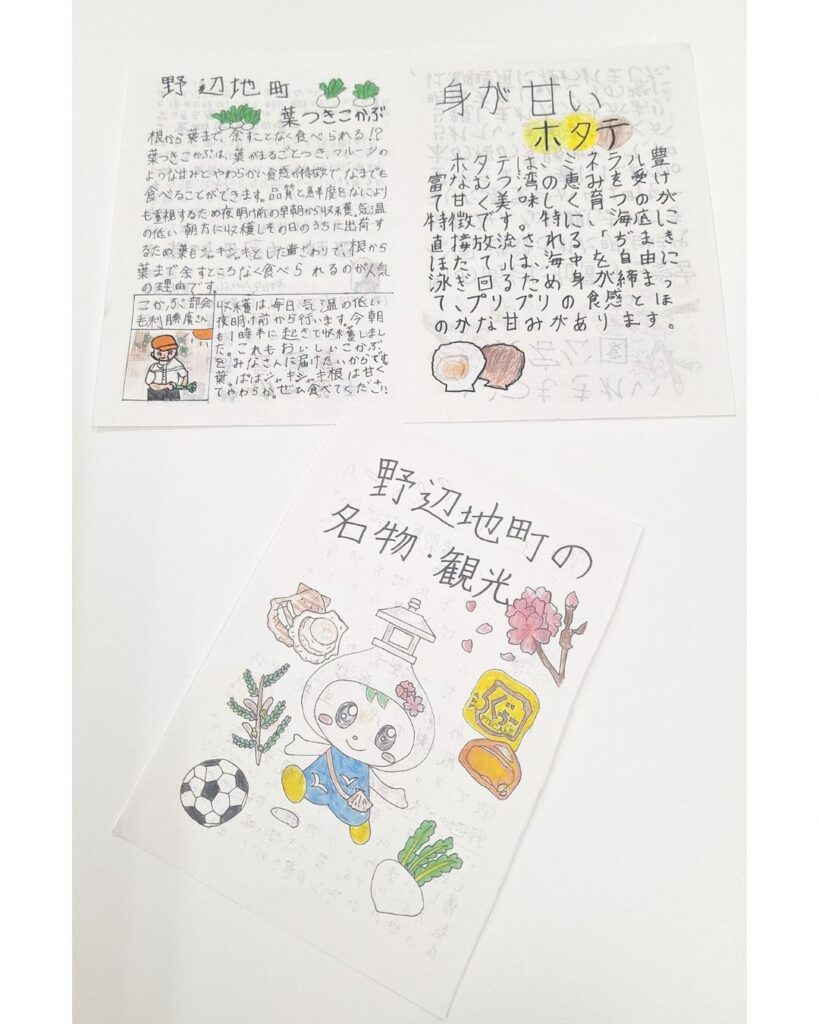 野辺地町
葉つきこかぶ
根から葉まで、余すことなく食べられる!?
葉つきこかぶは、葉がまるごとつき、フルーツの
ような甘みとやわらかい食感が特徴で、なまでも
食べることができます。品質と鮮度をなにより
も重視するため夜明け前の早朝から収穫。気温
の低い朝方に収穫しその日のうちに出荷す
るため葉もシャキシャキとした歯ざわりで、根から
葉まで余すところなく食べられるのが人気
の理由です。
こかぶさ部会
毛利勝廣さん
収穫は、毎日気温の低い
夜明け前から行います。今朝
も1時半に起きて収穫しまし
た。これもおいしいこかぶ
をみなさんに届けたいからです。
葉っぱはシャキシャキ根は甘く
てやわらか。ぜひ食べてください!!
身が甘い
ホタテ
ホタテは、ミネラル豊
富なむつ湾の恵みを受け
て甘く美味しく育つのが
特徴です。特に、海底に
直接放流される「ぢまき
ほたて」は海中を自由に
泳ぎ回るため身が締まっ
て、プリプリの食感とほ
のかな甘みがあります。
野辺地町の
名物・観光